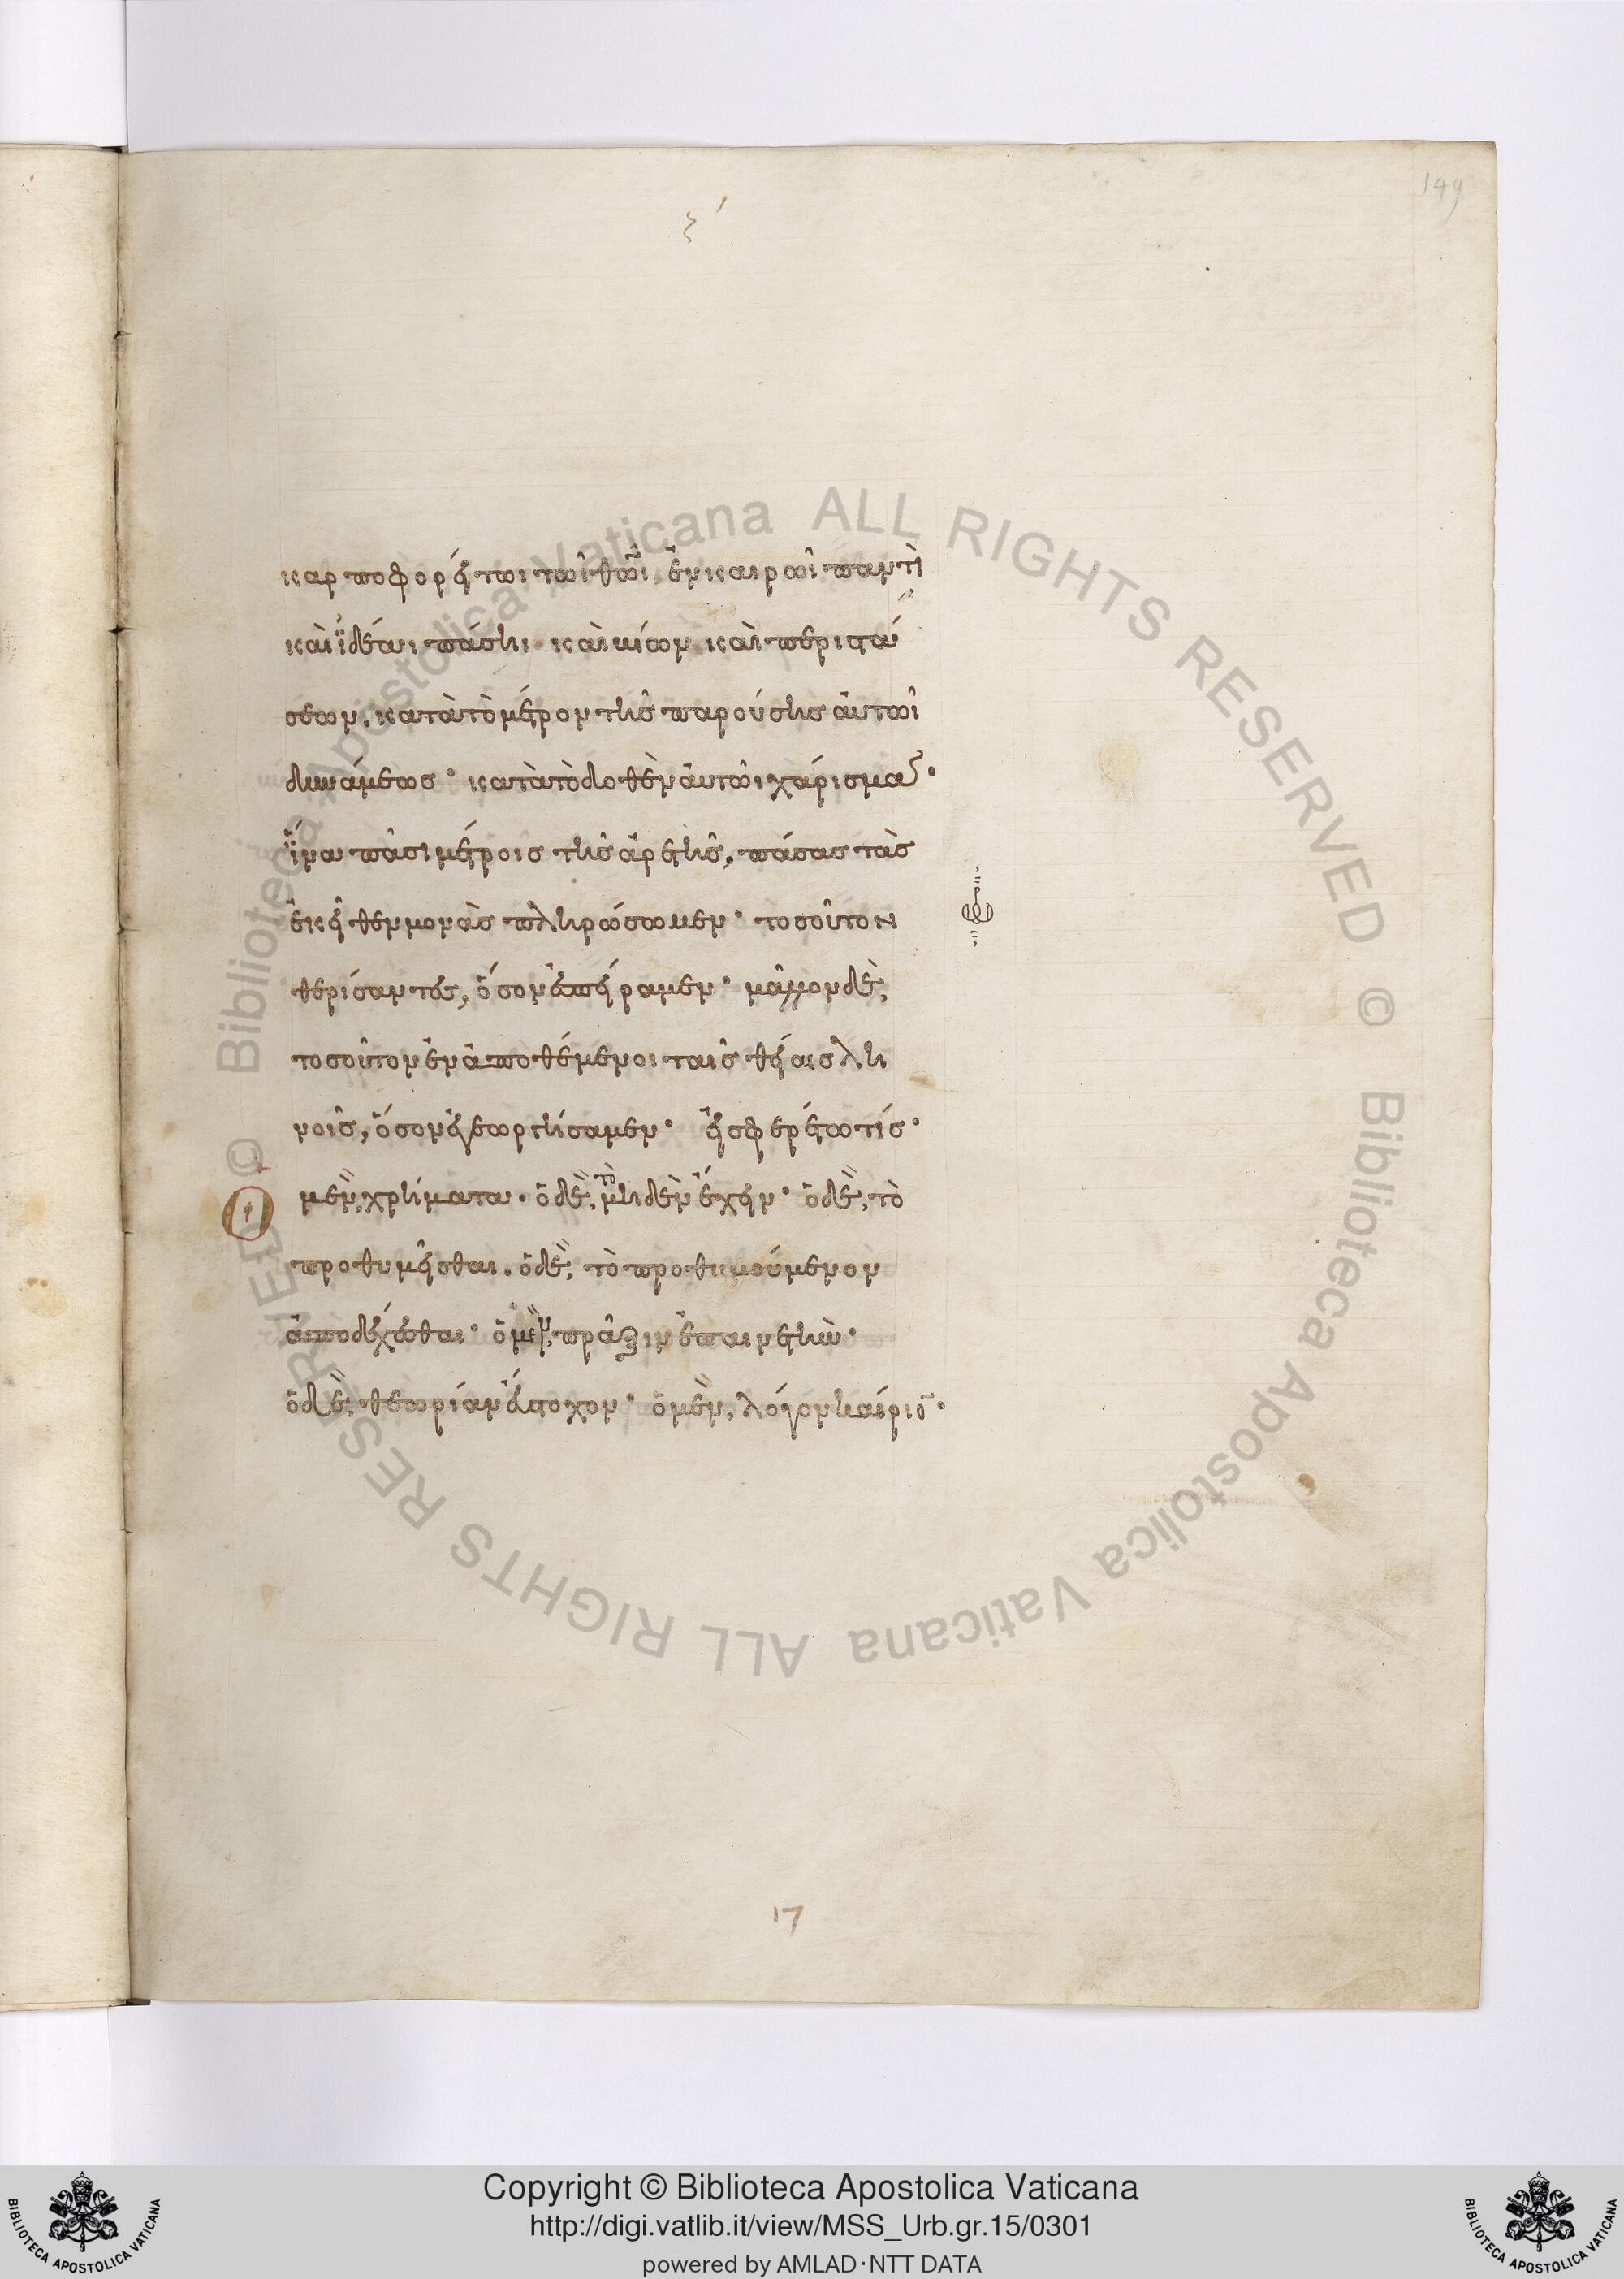 ξ´
149
καρποφορείτωι τῶι θῶι ἐν καιρῶι παντὶ
καὶ ἰδέαι πάσηι· καὶ μίων καὶ περιστά
σεων. κατὰ τὸ μέτρον τῆς παρούσης αὐτῶι
δυνάμεως· κατὰ τὸ δοθὲν αὐτῶι χάρισμα·
ἵνα πᾶσι μέτροις τῆς ἀρετῆς, πάσας τὰς
ἐκεῖθεν μονὰς πληρώσωμεν· τοσοῦτον
θερίσαντες, ὅσον ἐσπείραμεν· μᾶλλον δὲ,
τοσοῦτον ἐναποθέμενοι ταῖς θείαις λη
νοῖς, ὅσον ἐγεωργήσαμεν· εἰσφερέτω τίς·
μὲν, χρήματα. ὁ δὲ, τὸ μηδὲν ἔχειν· ὁ δὲ, τὸ
προθυμεῖσθαι. ὁ δὲ, τὸ προθυμούμενον
ἀποδέχεσθαι· ὁ μὲν, πρᾶξιν ἐπαινετὴν·
ὁ δὲ, θεωρίαν εὔστοχον· ὁ μὲν, λόγον καίριον·
17
Copyright © Biblioteca Apostolica Vaticana
http://digi.vatlib.it/view/MSS_Urb.gr.15/0301
powered by AMLAD·NTT DATA
BIBLIOTECA APOSTOLICA VATICANA
BIBLIOTECA APOSTOLICA VATICANA
© Biblioteca Apostolica Vaticana ALL RIGHTS RESERVED
© Biblioteca Apostolica Vaticana ALL RIGHTS RESERVED